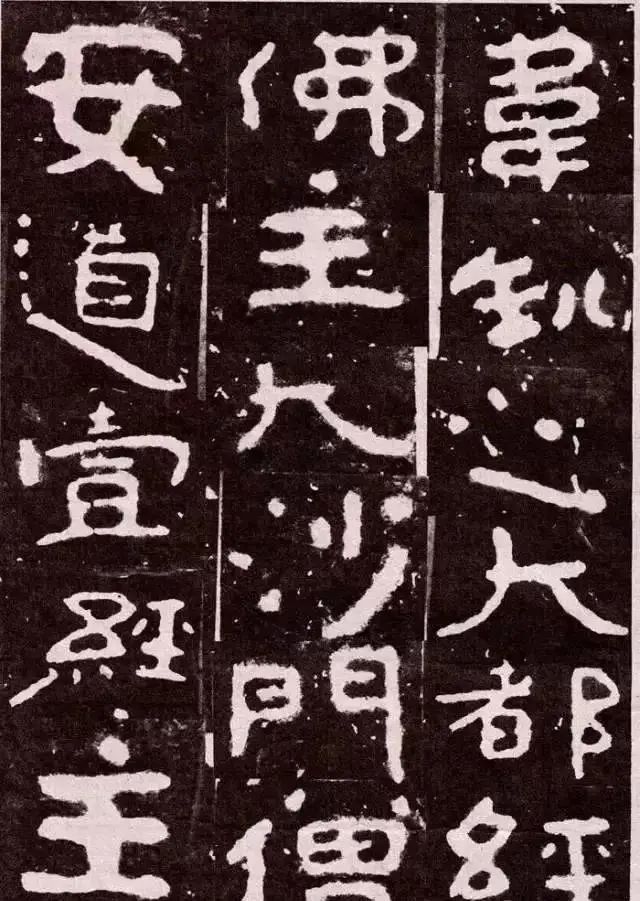 韋之大都經
佛主大沙門僧
安道壹經主